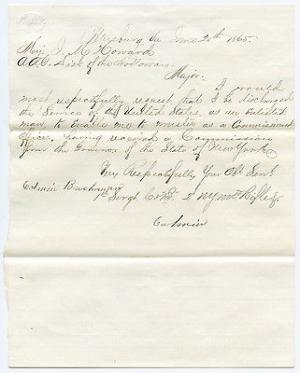 Petersburg Va June 20th 1865.
Maj. J. M Howard
A.A.G. Dist of the Nottoway
Major:
I would
most respectfully request that I be discharged
the Service of the United States, as an enlisted
man, to Enable me to muster as a Commissioned
Officer, having received a Commission
from the Governor of the State of New York
Very Respectfully Your Obt Servt
Edwin
1st Sergt Co 2 NY Mtd Rifles
Edwin